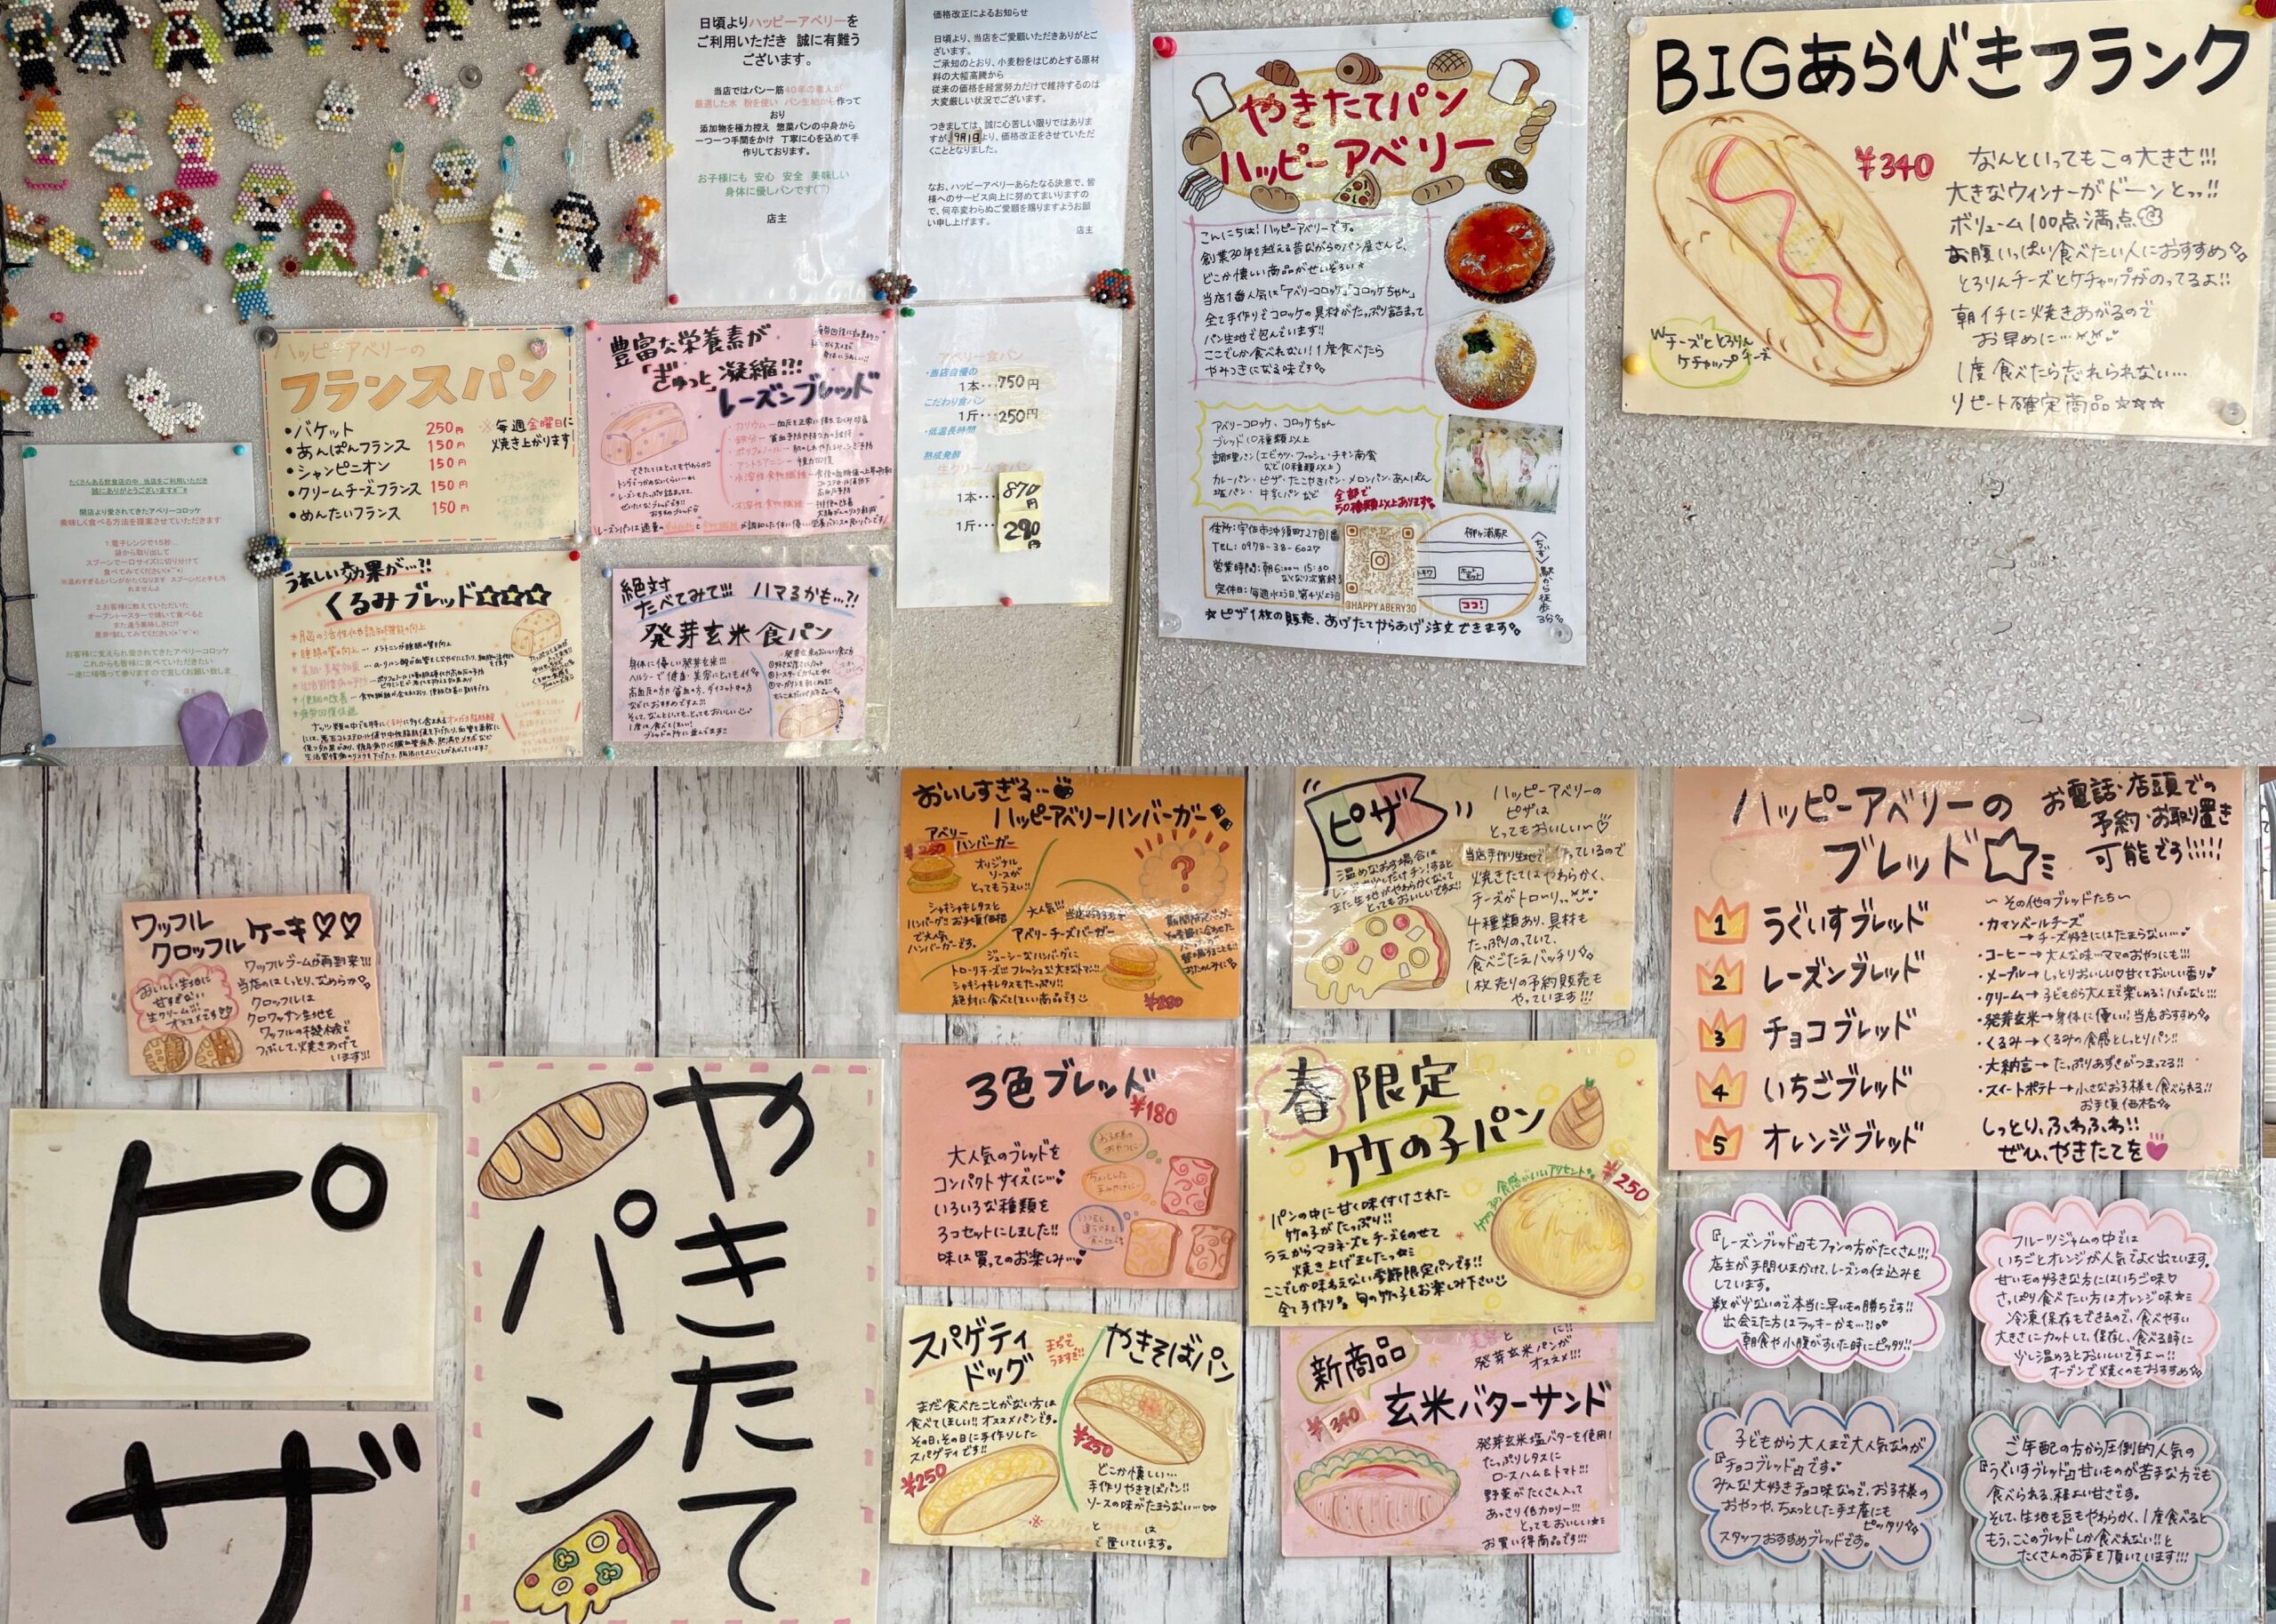 日頃よりハッピーアベリーを
ご利用いただき 誠に有難う
ございます。
当店ではパン一筋40年の職人が
厳選した水 粉を使い パン生地から作って
おり
添加物を極力控え 惣菜パンの中身から
一つ一つ手間をかけ 丁寧に心を込めて手
作りしております。
お子様にも 安心 安全 美味しい
身体に優しパンです(^^)
店主
価格改正によるお知らせ
日頃より、当店をご愛顧いただきありがとご
ざいます。
ご承知のとおり、小麦粉をはじめとする原材
料の大幅高騰から
従来の価格を経営努力だけで維持するのは
大変厳しい状況でございます。
つきましては、誠に心苦しい限りではありま
すが、9月1日より、価格改正をさせていただ
くこととなりました。
なお、ハッピーアベリーあらたなる決意で、皆
様へのサービス向上に努めてまいりますの
で、何卒変わらぬご愛顧を賜りますようお願
い申し上げます。
店主
ハッピーアベリーの
フランスパン
•バケット 250円
•あんぱんフランス 150円
•シャンピニオン 150円
•クリームチーズフランス 150円
•めんたいフランス 150円
※毎週金曜日に
焼き上がります
豊富な栄養素が
「ぎゅっと」凝縮!?!
レーズンブレッド
アベリー食パン
・当店自慢の
1本・・・750円
こだわり食パン
1斤・・・250円
・低温長時間
熟成発酵
生クリーム食パン
1本・・・870円
1斤・・・290円
たくさんある飲食店の中 当店をご利用いただき
誠にありがとうございます
開店より愛されてきたアベリーコロッケ
美味しく食べる方法を提案させていただきます
1.電子レンジで15秒...
袋から取り出して
スプーンで一口サイズに切り分けて
食べてみてください
※温めすぎるとパンがかたくなります スプーンだと手も汚
れませんよ
2.お客様に教えていただいた
オーブントースターで焼いて食べると
また違う美味しさに!?
是非!試してみてください
お客様に支えられ愛されてきたアベリーコロッケ
これからも皆様に食べていただきたい
一途に頑張って参りますので宜しくお願い致しま
す。
店主
うれしい効果が…?!
くるみブレッド☆☆☆
*睡眠の質の向上
*便秘の改善
*疲労回復促進
絶対
たべてみて!!! ハマるかも…?!
発芽玄米食パン
身体に優しい発芽玄米!!!
ヘルシーで健康・美容にとってもイイ
高血圧の方や貧血の方、ダイエット中の方
などにおすすめですよ
そして、なんといっても、とってもおいしい
1度は、食べてほしい!
やきたてパン
ハッピーアベリー
こんにちは!ハッピーアベリーです。
創業30年を越える昔ながらのパン屋さんで、
どこか懐しい商品がせいぞろい☆
当店1番人気は「アベリーコロッケ」「コロッケちゃん」
全て手作りでコロッケの具材がたっぷり詰まって
パン生地で包んでいます!!
ここでしか食べれない!1度食べたら
やみつきになる味です。
アベリーコロッケ、コロッケちゃん
ブレッド10種類以上
調理パン(エビカツ・フィッシュ・チキン南蛮
など10種類以上)
カレーパン・ピザ・たこやきパン・メロンパン・あんぱん
塩パン・牛乳パン など
全部で
50種類以上あります。
住所:宇佐市沖須町2丁目1番
TEL:0978-38-6027
営業時間:朝6:00〜15:30
なくなり次第終了
定休日:毎週水曜日、第4火曜日
@HAPPY.ABERY30
柳ヶ浦駅
ココ!
駅から徒歩3分
★ピザ1枚の販売、あげたてからあげ注文できます。
BIGあらびきフランク
¥340
なんといってもこの大きさ!!!
大きなウィンナーがドーンとっっ!!
ボリューム100点満点
お腹いっぱい食べたい人におすすめ
とろりんチーズとケチャップがのってるよ!!
朝イチに焼きあがるので
お早めに…
1度食べたら忘れられない…
リピート確定商品☆☆☆
Wチーズととろりん
ケチャップチーズ
ワッフル
クロッフル ケーキ♡♡
ワッフルブームが再到来!!!
当店のはしっとり、なめらか
クロッフルは
クロワッサン生地を
ワッフルの機械で
つぶして、焼きあげて
います!!!
おいしい生地に
甘すぎない
生クリーム!!!
オススメです
ピザ
やきたて
パン
おいしすぎる…
ハッピーアベリーハンバーガー
アベリー
ハンバーガー
¥250
オリジナル
ソースが
とってもうまい!!
シャキシャキレタスと
ハンバーグ!! お手頃価格
で大人気
ハンバーガーです。
大人気!!!
アベリーチーズバーガー
ジューシーなハンバーグに
トローリチーズ!!! フレッシュな大きなトマト!!!
シャキシャキレタスもたっぷり!!
絶対に食べてほしい商品です
¥280
?
ピザ
温めなおす場合は
レンジで少しだけチン!すると
また生地がやわらかくなって
とってもおいしいですよ!!
ハッピーアベリーの
ピザは
とってもおいしい〜♡
当店手作り生地で作っているので
焼きたてはやわらかく、
チーズがトローリ…
4種類あり、具材も
たっぷりのっていて、
食べごたえバッチリ
1枚売りの予約販売も
やっています!!!
3色ブレッド
¥180
大人気のブレッドを
コンパクトサイズに…
いろいろな種類を
3コセットにしました!!
味は買ってのお楽しみ…
お子様の
おやつに
春限定
竹の子パン
¥250
竹の子の食感がいいアクセント
パンの中に甘く味付けされた
竹の子がたっぷり!!
うえからマヨネーズとチーズをのせて
焼き上げました
ここでしか味わえない季節限定パンです!!
全て手作り 旬の竹の子をお楽しみ下さい
スパゲティ
ドッグ
まぢで
うますぎ!!
まだ食べたことがない方は
食べてほしい!! オススメパンです。
その日、その日に手作りした
スパゲティです!!
¥250
やきそばパン
¥250
どこか懐しい…
手作りやきそばパン!!
ソースの味がたまらない…
新商品
発芽玄米パンが
オススメ!!!
玄米バターサンド
¥340
発芽玄米塩バターを使用!
たっぷりレタスに
ロースハム&トマト!!!
野菜がたくさん入って
あっさり低カロリー!!!
とってもおいしい
お買い得商品です!!!
ハッピーアベリーの
ブレッド☆
お電話・店頭での
予約・お取り置き
可能です!!!!!
1 うぐいすブレッド
2 レーズンブレッド
3 チョコブレッド
4 いちごブレッド
5 オレンジブレッド
〜その他のブレッドたち〜
・カマンベールチーズ
→チーズ好きにはたまらない…
・コーヒー→大人な味…ママのおやつにも!!
・メープル→しっとりおいしい♡甘くておいしい香り
・クリーム→子どもから大人まで楽しめる!ハズレなし!!!
・発芽玄米→身体に優しい!当店おすすめ
・くるみ→くるみの食感としっとりパン!!
・大納言→たっぷりあずきがつまってる!!
・スイートポテト→小さなお子様も食べられる!!
お手頃価格
しっとり、ふわふわ!!
ぜひ、やきたてを
『レーズンブレッド』もファンの方がたくさん!!!
店主が手間ひまかけて、レーズンの仕込みを
しています。
数が少ないので本当に早いもの勝ちです!!
出会えた方はラッキーかも…?!
朝食や小腹がすいた時にピッタリ!!
フルーツジャムの中では
いちごとオレンジが人気でよく出ています。
甘いもの好きな方にはいちご味♡
さっぱり食べたい方はオレンジ味
冷凍保存もできるので、食べやすい
大きさにカットして、保存し、食べる時に
少し温めるとおいしいですよ〜!!
オーブンで焼くのもおすすめ
子どもから大人まで大人気なのが
『チョコブレッド』です。
みんな大好きチョコ味なので、お子様の
おやつや、ちょっとした手土産にも
ピッタリ
スタッフおすすめブレッドです。
ご年配の方から圧倒的人気の
『うぐいすブレッド』甘いものが苦手な方でも
食べられる、程よい甘さです。
そして、生地も豆もやわらかく、1度食べると
もう、ここのブレッドしか食べれない!!と
たくさんのお声を頂いています!!!